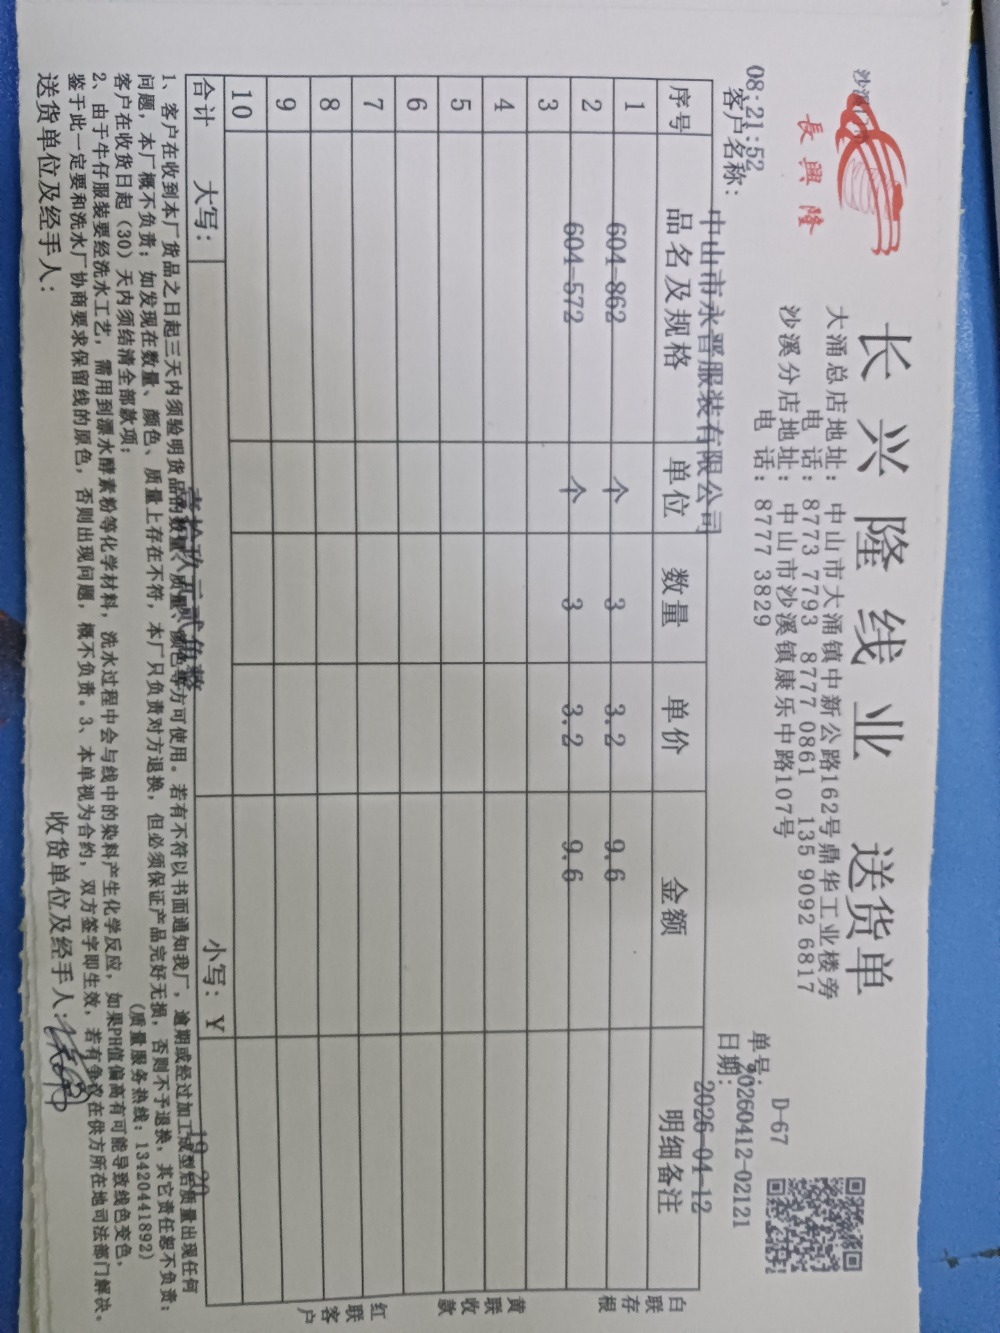 長興隆
长兴隆线业 送货单
大涌总店地址：中山市大涌镇中新公路162号鼎华工业楼旁
电 话：8773 7793 8777 0861 135 9092 6817
沙溪分店地址：中山市沙溪镇康乐中路107号
电 话：8777 3829
D-67
单号：20260412-02121
日期：2026-04-12
08:21:52
客户名称：中山市永晋服装有限公司
序号 品名及规格 单位 数量 单价 金额 明细备注
1 604-862 个 3 3.2 9.6
2 604-572 个 3 3.2 9.6
3
4
5
6
7
8
9
10
合计 大写：壹拾玖元贰角整 小写：¥ 19.20
白联存根
黄联收款
红联客户
1、客户在收到本厂货品之日起三天内须验明货品的数量、质量、颜色等方可使用。若有不符以书面通知我厂，逾期或经过加工成型后质量出现任何
问题，本厂概不负责；如发现在数量、颜色、质量上存在不符，本厂只负责对方退换，但必须保证产品完好无损，否则不予退换，其它责任恕不负责；
客户在收货日起（30）天内须结清全部款项； （质量服务热线：13420441892）
2、由于牛仔服装要经洗水工艺，需用到漂水酵素粉等化学材料，洗水过程中会与线中的染料产生化学反应，如果PH值偏高有可能导致线色变色，
鉴于此一定要和洗水厂协商要求保留线的原色，否则出现问题，概不负责。3、本单视为合约，双方签字即生效，若有争议在供方所在地司法部门解决。
送货单位及经手人： 收货单位及经手人：